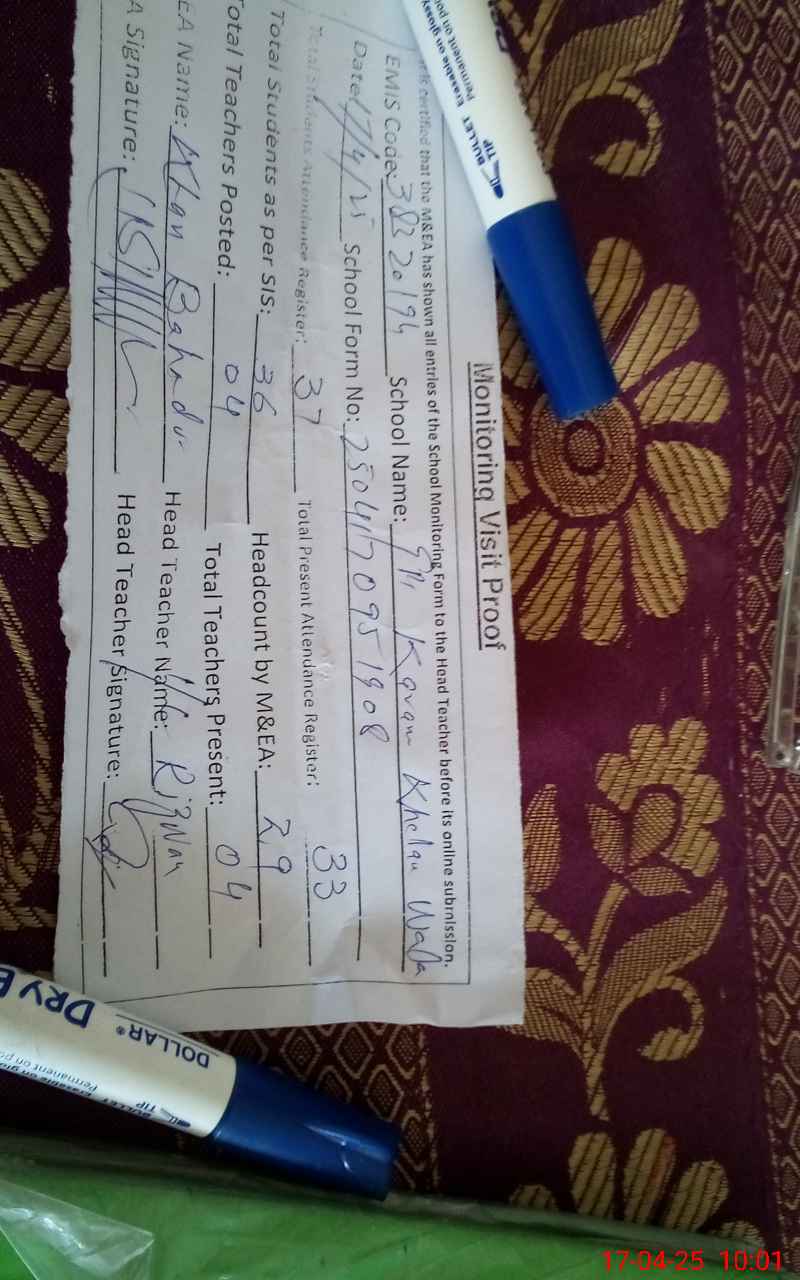 Monitoring Visit Proof
is certified that the M&EA has shown all entries of the School Monitoring Form to the Head Teacher before its online submission.
EMIS Code: 38320194 School Name: Karam Khelan Wala
Date: 17/4/25 School Form No: 2504170951908
Total Students Attendance Register: 37 Total Present Attendance Register: 33
Total Students as per SIS: 36 Headcount by M&EA: 29
Total Teachers Posted: 04 Total Teachers Present: 04
EA Name: Khan Bahadur Head Teacher Name: Rizwan
A Signature: Head Teacher Signature:
BULLET TIP Erasable on glossy
Permanent on po
DOLLAR® DRY E
BULLET TIP Erasable on glo
Permanent on po
17-04-25 10:01